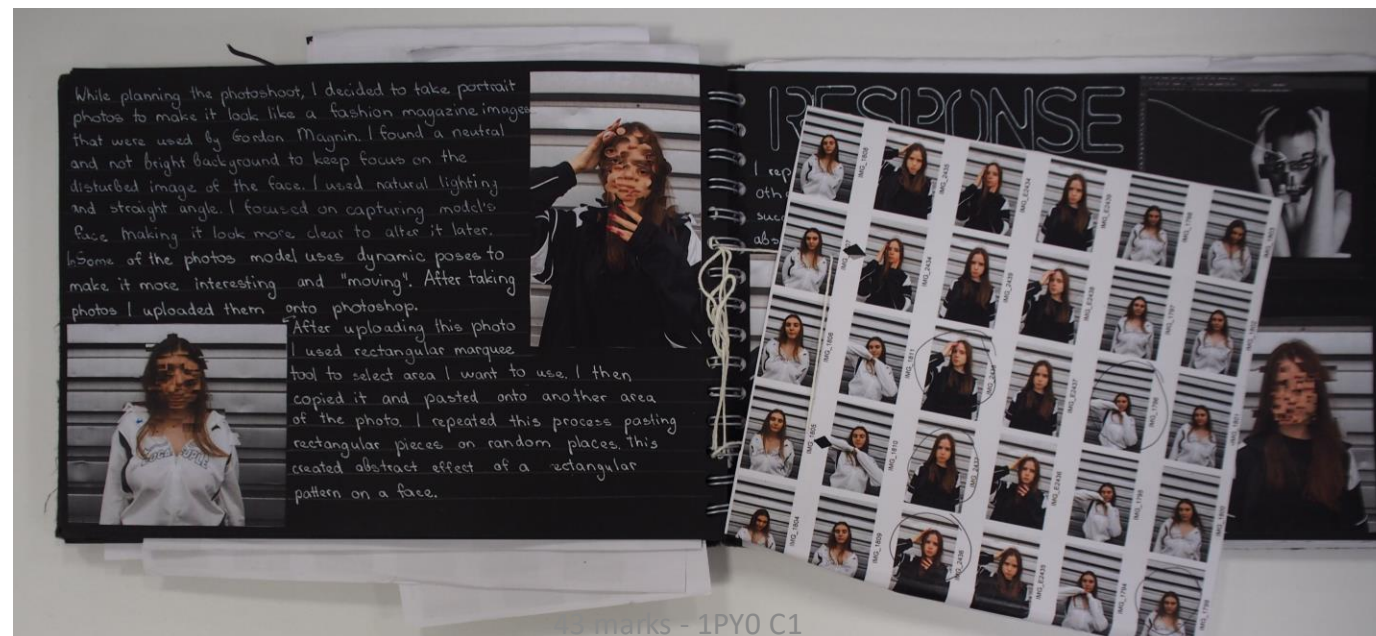 While planning the photoshoot, I decided to take portrait
photos to make it look like a fashion magazine images
that were used by Gordon Magnin. I found a neutral
and not bright background to keep focus on the
disturbed image of the face. I used natural lighting
and straight angle. I focused on capturing model's
face making it look more clear to alter it later.
Some of the photos model uses dynamic poses to
make it more interesting and "moving". After taking
photos I uploaded them onto photoshop.
After uploading this photo
I used rectangular marquee
tool to select area I want to use. I then
copied it and pasted onto another area
of the photo. I repeated this process pasting
rectangular pieces on random places. This
created abstract effect of a rectangular
pattern on a face.
RESPONSE
I rep
oth
suc
abs
IMG_1808
IMG_2435
IMG_E2434
IMG_1811
IMG_2434
IMG_1810
IMG_2437
IMG_E2437
IMG_E2436
IMG_1804
IMG_1809
IMG_2436
IMG_E2435
IMG_1794
IMG_1795
43 marks - 1PY0 C1